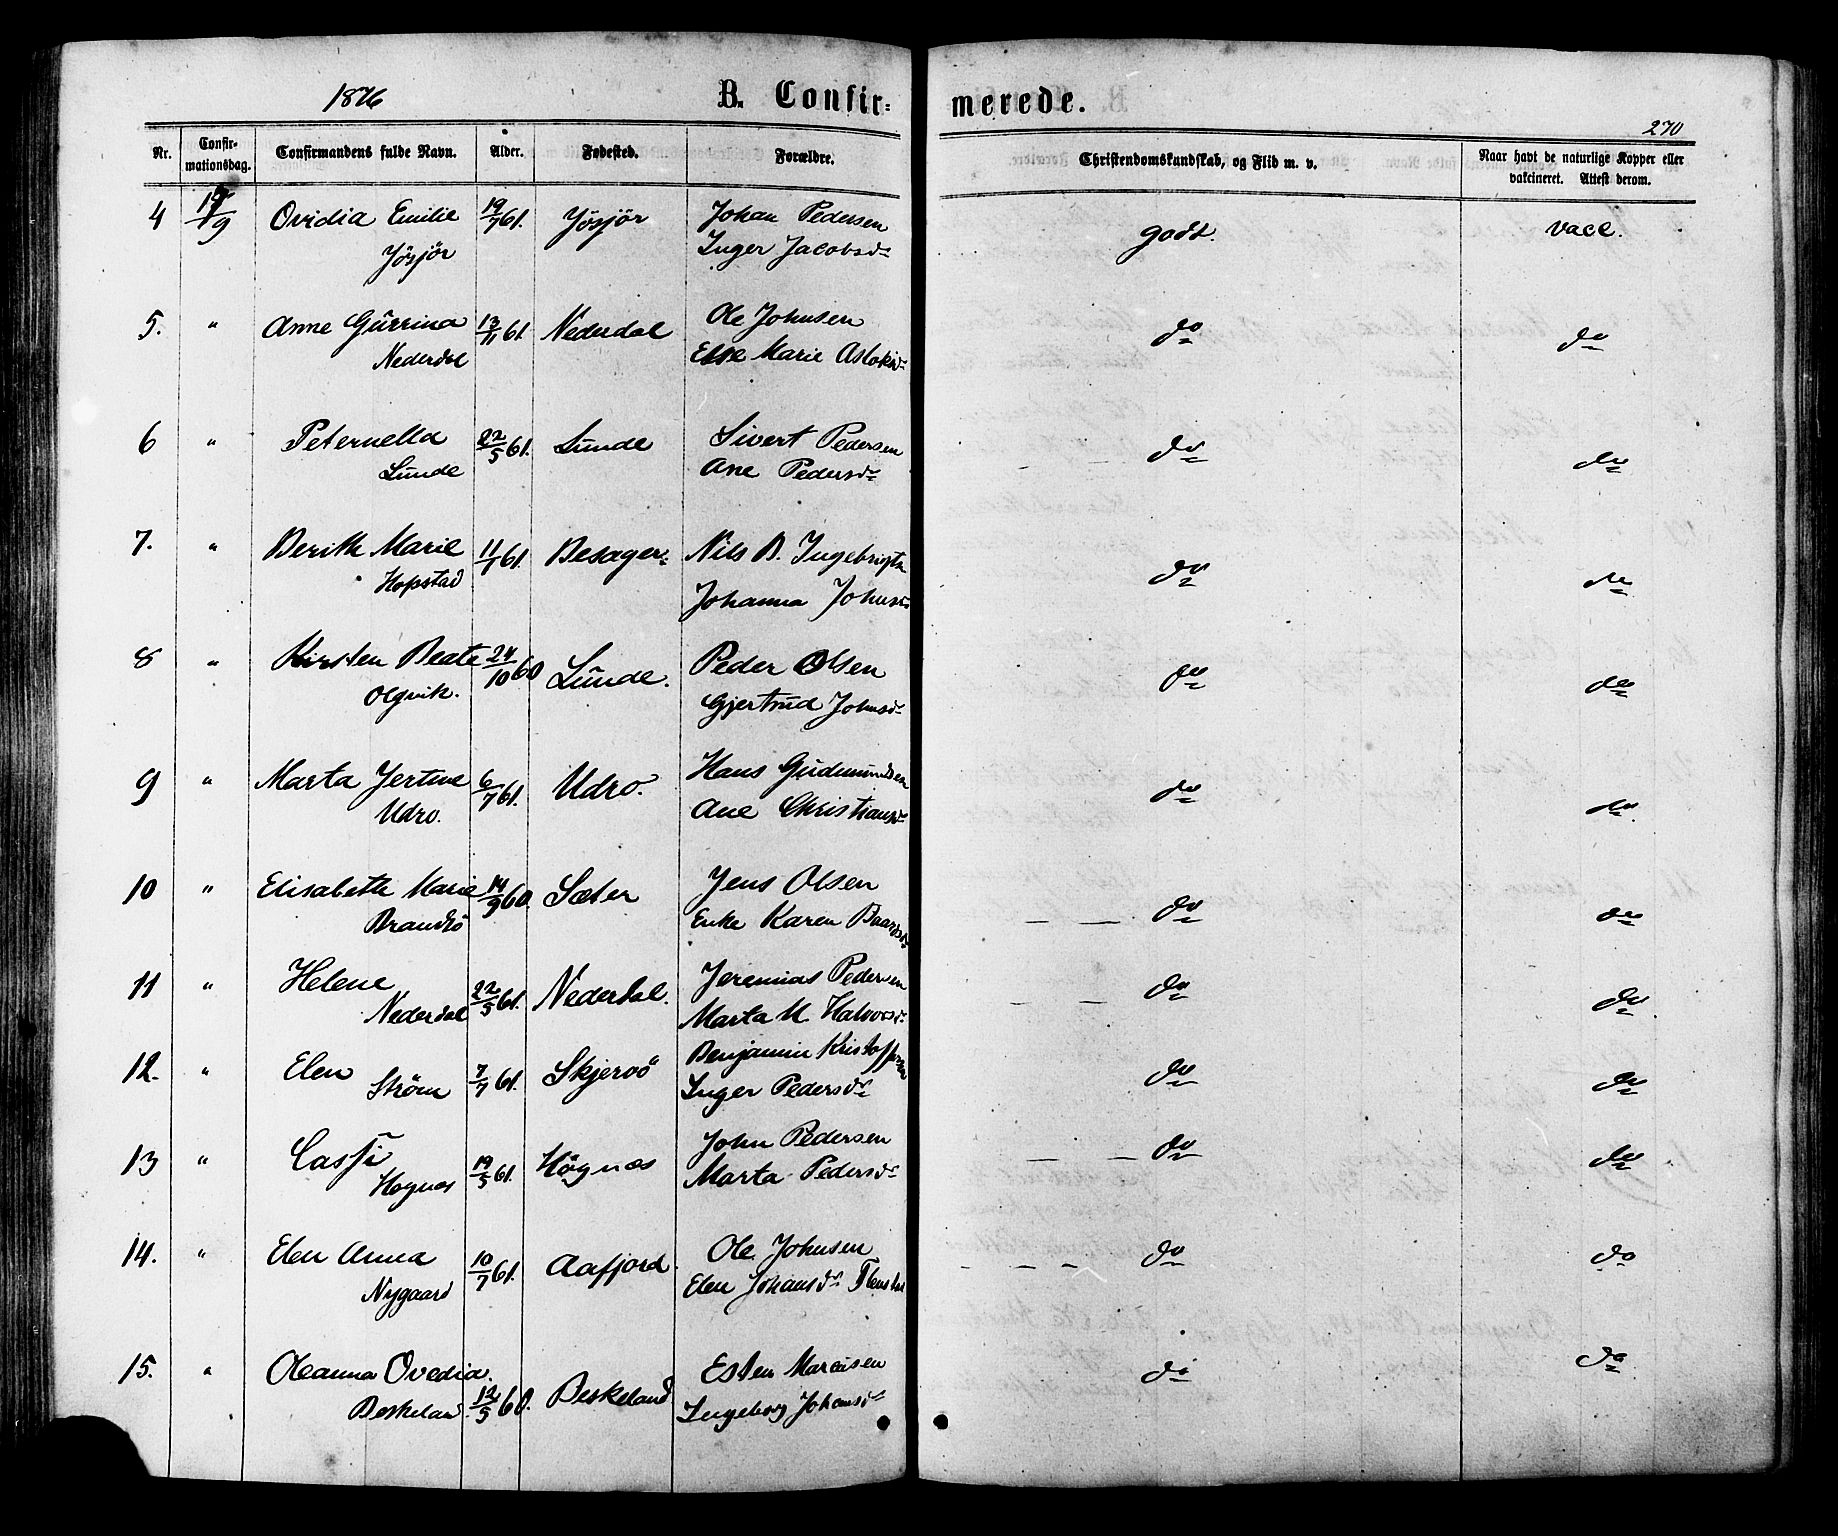 1876 B. Confir- merede.
270
Nr. Confir-mationsdag. Confirmandens fulde Navn. Alder. Fødested. Forældre. Christendomskundskab, og Flid m. v. Naar havt de naturlige Kopper eller vakcineret. Attest derom.
4 /9 Ovidia Emilie 19/7 61. Jösjör Johan Pedersen godt. vacc.
Jösjör Inger Jacobsdr
5. " Anne Gurrina 13/11 61. Nederdal Ole Johnsen do do
Nederdal Else Marie Aslaksdr
6 " Peternella 22/5 61. Lunde Sivert Pedersen — — do do
Lunde Ane Pedersdr
7. " Berith Marie 11/1 61. Besager Nils B. Ingebrigts do do
Hopstad Johanna Johnsdr
8 " Kirsten Beate 24/10 60 Lunde. Peder Olsen do do
Olgvik. Gjertrud Johnsdr
9 " Marta Jertine 6/7 61. Udro. Hans Gudmundsen do do
Udro. Ane Christiansdr
10 " Elisabeth Marie 14/9 60. Sæter Jens Olsen — — do do
Brandsö Enke Karen Baardsdr
11 " Helene 22/5 61. Nederdal. Jeremias Pedersen — — do do
Nederdal Marta M. Halvorsdr
12. " Elen 7/7 61. Skjervö Benjamin Kristoffersen do do
Strøm Inger Pedersdr
13 " Cassi 19/5 61. Högnæs John Pedersen — — do do
Hognæs Marta Pedersdr
14. " Elen Anna 10/7 61. Aafjord. Ole Johnsen — — — do do
Nygaard Elen Johansdr
15. " Oleanna Ovedia. 12/5 60. Beskeland Esten Marcusen do do
Beskeland. Ingeborg Johansdr